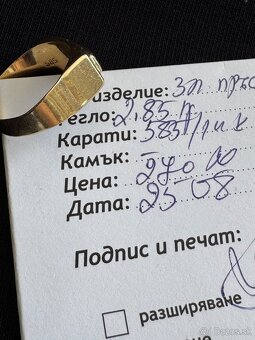 изделие: Зл. пръс
егло: 2,85 г
Карати: 585/14к
Камък:
Цена: 270 00
Дата: 25 08
Подпис и печат:
разширяване